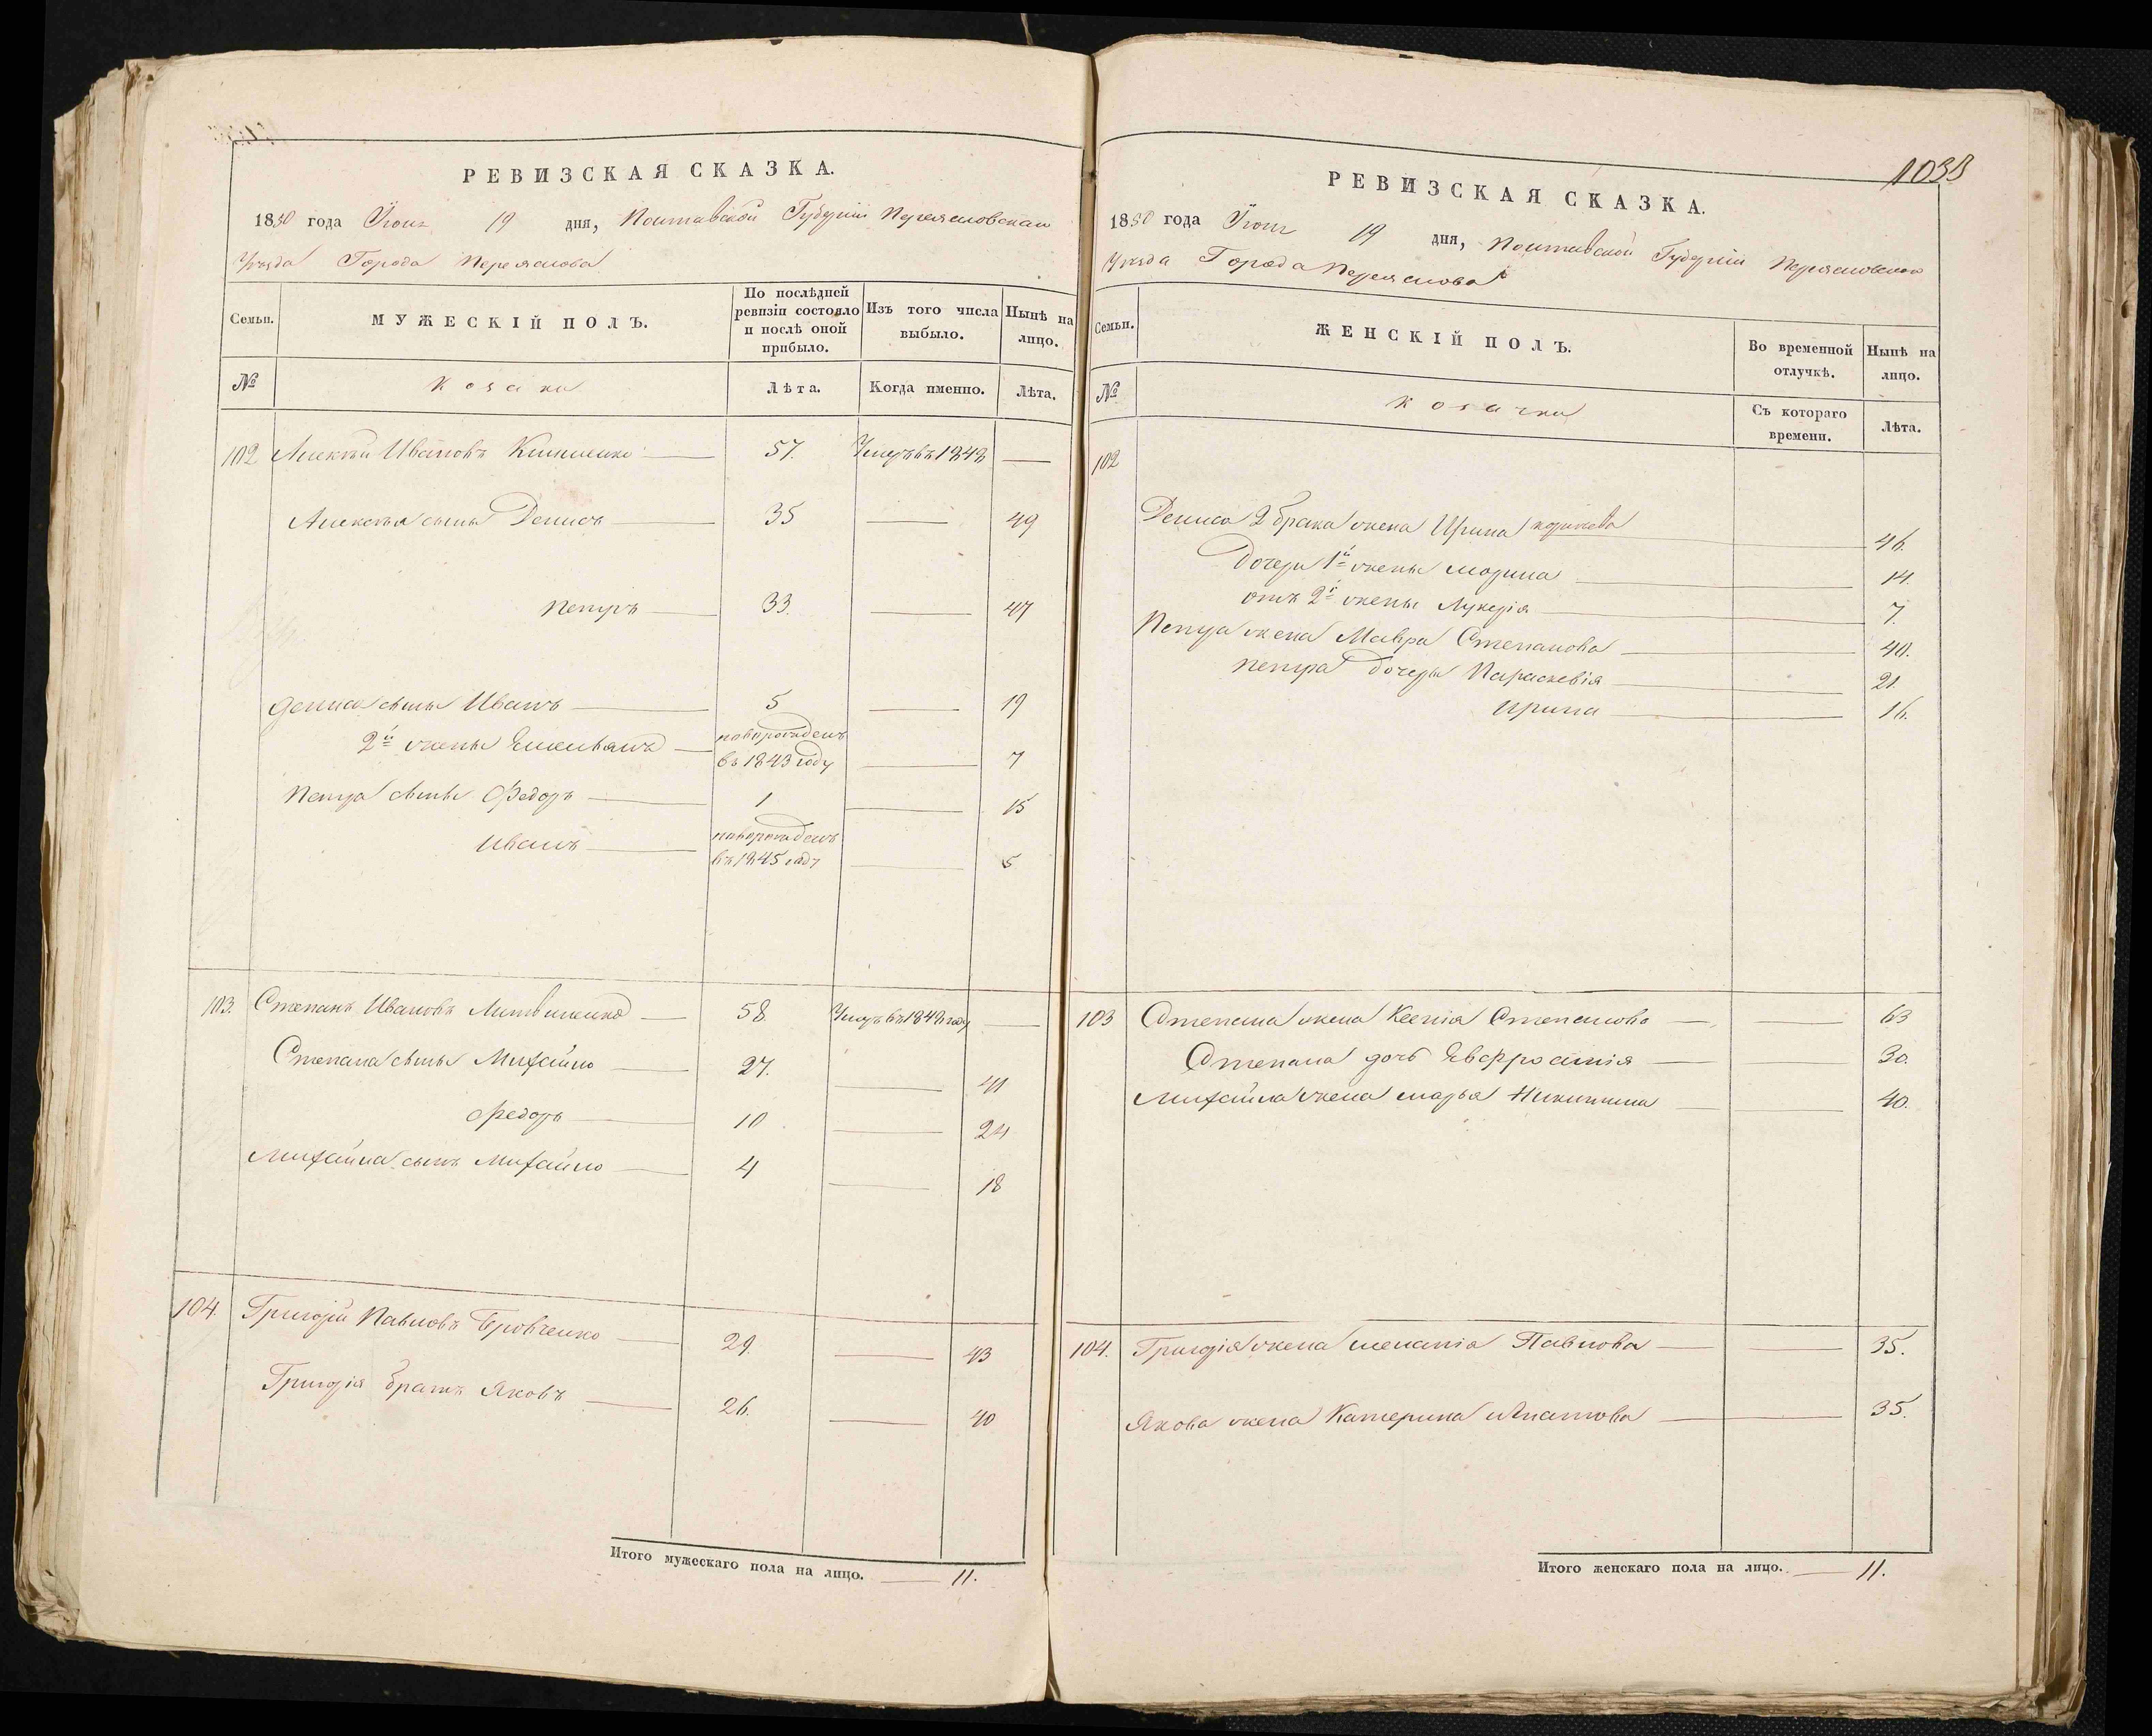 РЕВИЗСКАЯ СКАЗКА.
1850 года Іюня 19 дня, Полтавской Губерніи Переясловскаго
Уѣзда Города Переяслова
Семьи.
МУЖЕСКІЙ ПОЛЪ.
По послѣдней ревизіи состояло и послѣ оной прибыло.
Изъ того числа выбыло.
Нынѣ на лицо.
№
Козаки
Лѣта.
Когда именно.
Лѣта.
102 Алексѣй Ивановъ 57. Умеръ въ 1848
Алексѣя сынъ Денисъ 35 49
Петръ 33. 47
Дениса сынъ Иванъ 5 19
2й жены Емельянъ новорожденъ
въ 1843 году 7
Петра сынъ Федоръ 1 15
Иванъ новорожденъ
въ 1845 году 5
103. Степанъ Ивановъ Литвиненко 58. Умеръ въ 1848 году
Степана сынъ Михайло 27. 41
Федоръ 10 24
Михайла сынъ Михайло 4 18
104. Григорій Павловъ Бровченко 29. 43
Григорія братъ Яковъ 26. 40
Итого мужескаго пола на лицо. 11.
1038
РЕВИЗСКАЯ СКАЗКА.
1850 года Іюня 19 дня, Полтавской Губерніи Переясловскаго
Уѣзда Города Переяслова
Семьи.
ЖЕНСКІЙ ПОЛЪ.
Во временной отлучкѣ.
Нынѣ на лицо.
№
Козачки
Съ котораго времени.
Лѣта.
102
Дениса 2 брака жена Ирина 46.
Дочери 1й жены Марина 14.
отъ 2й жены Лукерія 7.
Петра жена Мавра Степанова 40.
Петра дочери Параскевія 21.
Ирина 16.
103 Степана жена Ксенія Степанова 63
Степана дочь Евфросинія 30.
Михайла жена Марья Никитина 40.
104. Григорія жена Меланія Павлова 35.
Якова жена Катерина Игнатова 35.
Итого женскаго пола на лицо. 11.